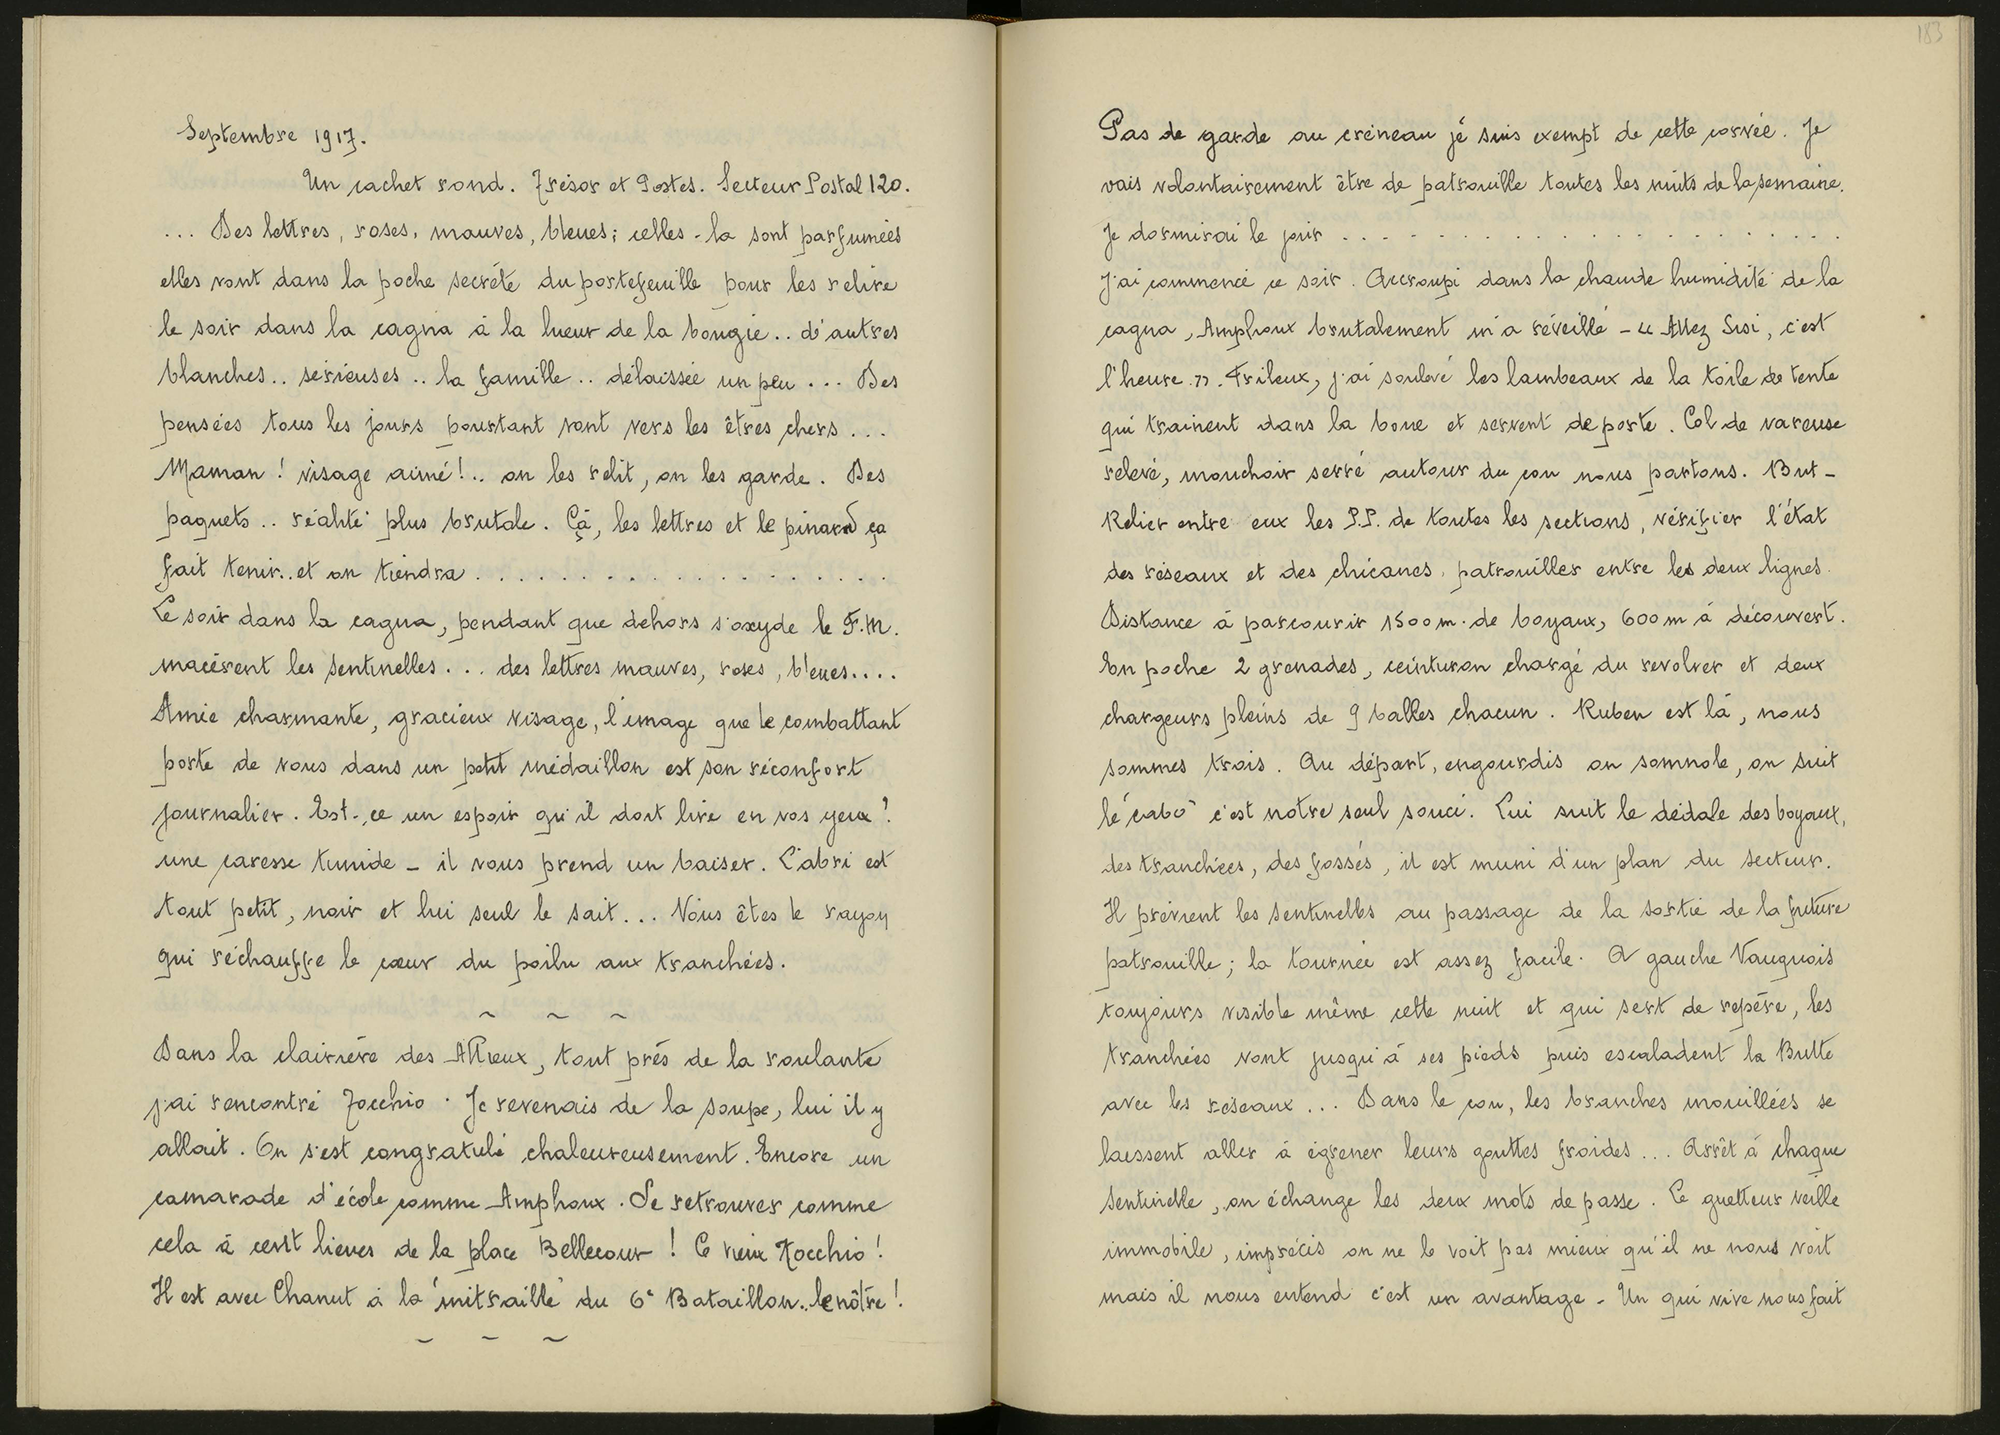 Septembre 1917.
Un cachet rond. Trésor et Postes. Secteur Postal 120.
... Des lettres, roses, mauves, bleues; celles-la sont parfumées
elles vont dans la poche secrète du portefeuille pour les relire
le soir dans la cagna à la lueur de la bougie.. d'autres
blanches.. sérieuses.. la famille.. délaissée un peu... Des
pensées tous les jours pourtant vont vers les êtres chers...
Maman! visage aimé!.. on les relit, on les garde. Des
paquets.. réalité plus brutale. Çà, les lettres et le pinard ça
fait tenir.. et on tiendra . . . . . . . . . . . . . . . . . .
Le soir dans la cagna, pendant que dehors s'oxyde le F.M.
macèrent les sentinelles... des lettres mauves, roses, bleues....
Amie charmante, gracieux visage, l'image que le combattant
porte de vous dans un petit médaillon est son réconfort
journalier. Est-ce un espoir qu'il doit lire en vos yeux?
une caresse timide - il vous prend un baiser. L'abri est
tout petit, noir et lui seul le sait... Vous êtes le rayon
qui réchauffe le cœur du poilu aux tranchées.
~ ~ ~
Dans la clairière des Allieux, tout près de la roulante
j'ai rencontré Tocchio. Je revenais de la soupe, lui il y
allait. On s'est congratulé chaleureusement. Encore un
camarade d'école comme Amphoux. Se retrouver comme
cela à cent lieues de la place Bellecour! Ce vieux Tocchio!
Il est avec Chanut à la "mitraille" du 6e Bataillon.. le nôtre!
~ ~ ~
183
Pas de garde au créneau je suis exempt de cette corvée. Je
vais volontairement être de patrouille toutes les nuits de la semaine.
Je dormirai le jour . . . . . . . . . . . . . . . . . . . .
J'ai commencé ce soir. Accroupi dans la chaude humidité de la
cagna, Amphoux brutalement m'a réveillé - "Allez Susi, c'est
l'heure". Frileux, j'ai soulevé les lambeaux de la toile de tente
qui trainent dans la boue et servent de porte. Col de vareuse
relevé, mouchoir serré autour du cou nous partons. But -
Relier entre eux les P.P. de toutes les sections, vérifier l'état
des réseaux et des chicanes, patrouiller entre les deux lignes.
Distance à parcourir 1500 m. de boyaux, 600 m à découvert.
En poche 2 grenades, ceinturon chargé du revolver et deux
chargeurs pleins de 9 balles chacun. Ruben est là, nous
sommes trois. Au départ, engourdis on somnole, on suit
le "cabo" c'est notre seul souci. Lui suit le dédale des boyaux,
des tranchées, des fossés, il est muni d'un plan du secteur.
Il prévient les sentinelles au passage de la sortie de la future
patrouille; la tournée est assez facile. A gauche Vauquois
toujours visible même cette nuit et qui sert de repère, les
tranchées vont jusqu'à ses pieds puis escaladent la Butte
avec les réseaux... Dans le cou, les branches mouillées se
laissent aller à égrener leurs gouttes froides... Arrêt à chaque
sentinelle, on échange les deux mots de passe. Le guetteur veille
immobile, imprécis on ne le voit pas mieux qu'il ne nous voit
mais il nous entend c'est un avantage - Un qui vive nous fait